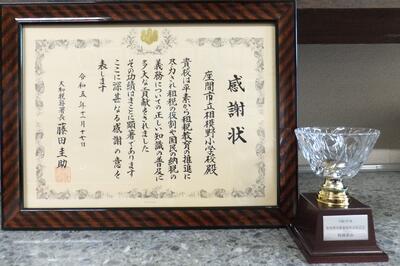 感謝状
座間市立相模野小学校殿
貴校は平素から租税教育の推進に
尽力され租税の役割や国民の納税の
義務についての正しい知識の普及に
多大な貢献をされました
その功績はまことに顕著であります
ここに深甚なる感謝の意を
表します
令和五年十一月十七日
大和税務署長 藤田圭助